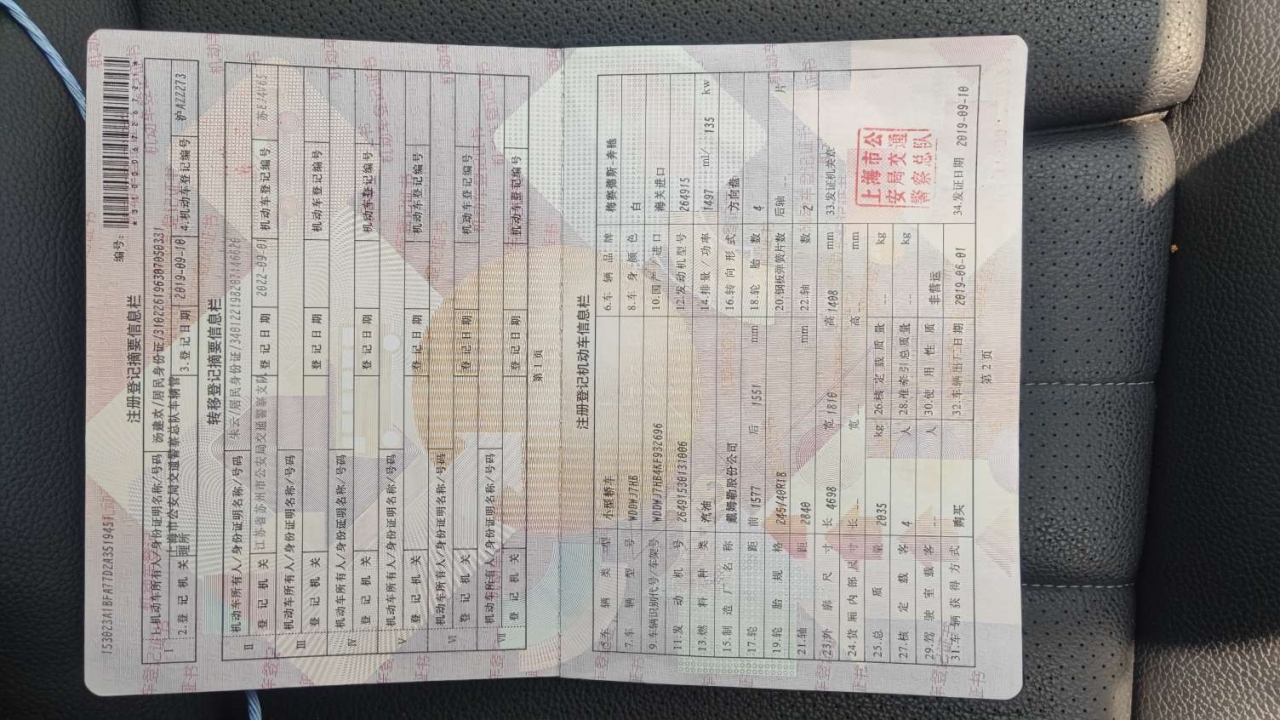 153023A1BFA77D2A3519451
编号:
注册登记摘要信息栏
I 1.机动车所有人/身份证明名称/号码 杨建欢/居民身份证/310226196307050331
2.登记机关 上海市公安局交通警察总队车辆管理所 3.登记日期 2019-09-10 4.机动车登记编号 沪AZZ273
转移登记摘要信息栏
II 机动车所有人/身份证明名称/号码 朱云/居民身份证/
登记机关 江苏省苏州市公安局交通警察支队 登记日期 2022-09-01 机动车登记编号
III 机动车所有人/身份证明名称/号码
登记机关 登记日期 机动车登记编号
IV 机动车所有人/身份证明名称/号码
登记机关 登记日期 机动车登记编号
V 机动车所有人/身份证明名称/号码
登记机关 登记日期 机动车登记编号
VI 机动车所有人/身份证明名称/号码
登记机关 登记日期 机动车登记编号
VII 机动车所有人/身份证明名称/号码
登记机关 登记日期 机动车登记编号
第 1 页
注册登记机动车信息栏
5.车辆类型 小型轿车 6.车辆品牌 梅赛德斯-奔驰
7.车辆型号 WDDWJ7HB 8.车身颜色 白
9.车辆识别代号/车架号 WDDWJ7HB4KF932696 10.国产/进口 海关进口
11.发动机号 26491530131006 12.发动机型号 264915
13.燃料种类 汽油 14.排量/功率 1497 ml/ 135 kw
15.制造厂名称 戴姆勒股份公司 16.转向形式 方向盘
17.轮距 前 1577 后 1551 mm 18.轮胎数 4
19.轮胎规格 245/40R18 20.钢板弹簧片数 后轴 片
21.轴距 2840 mm 22.轴数 2
23.外廓尺寸 长 4698 宽 1810 高 1408 mm 33.发证机关章
24.货厢内部尺寸 长 -- 宽 -- 高 -- mm
上海市公安局交通警察总队
25.总质量 2035 kg 26.核定载质量 -- kg
27.核定载客 4 人 28.准牵引总质量 -- kg
29.驾驶室载客 -- 人 30.使用性质 非营运
31.车辆获得方式 购买 32.车辆出厂日期 2019-06-01 34.发证日期 2019-09-10
第 2 页